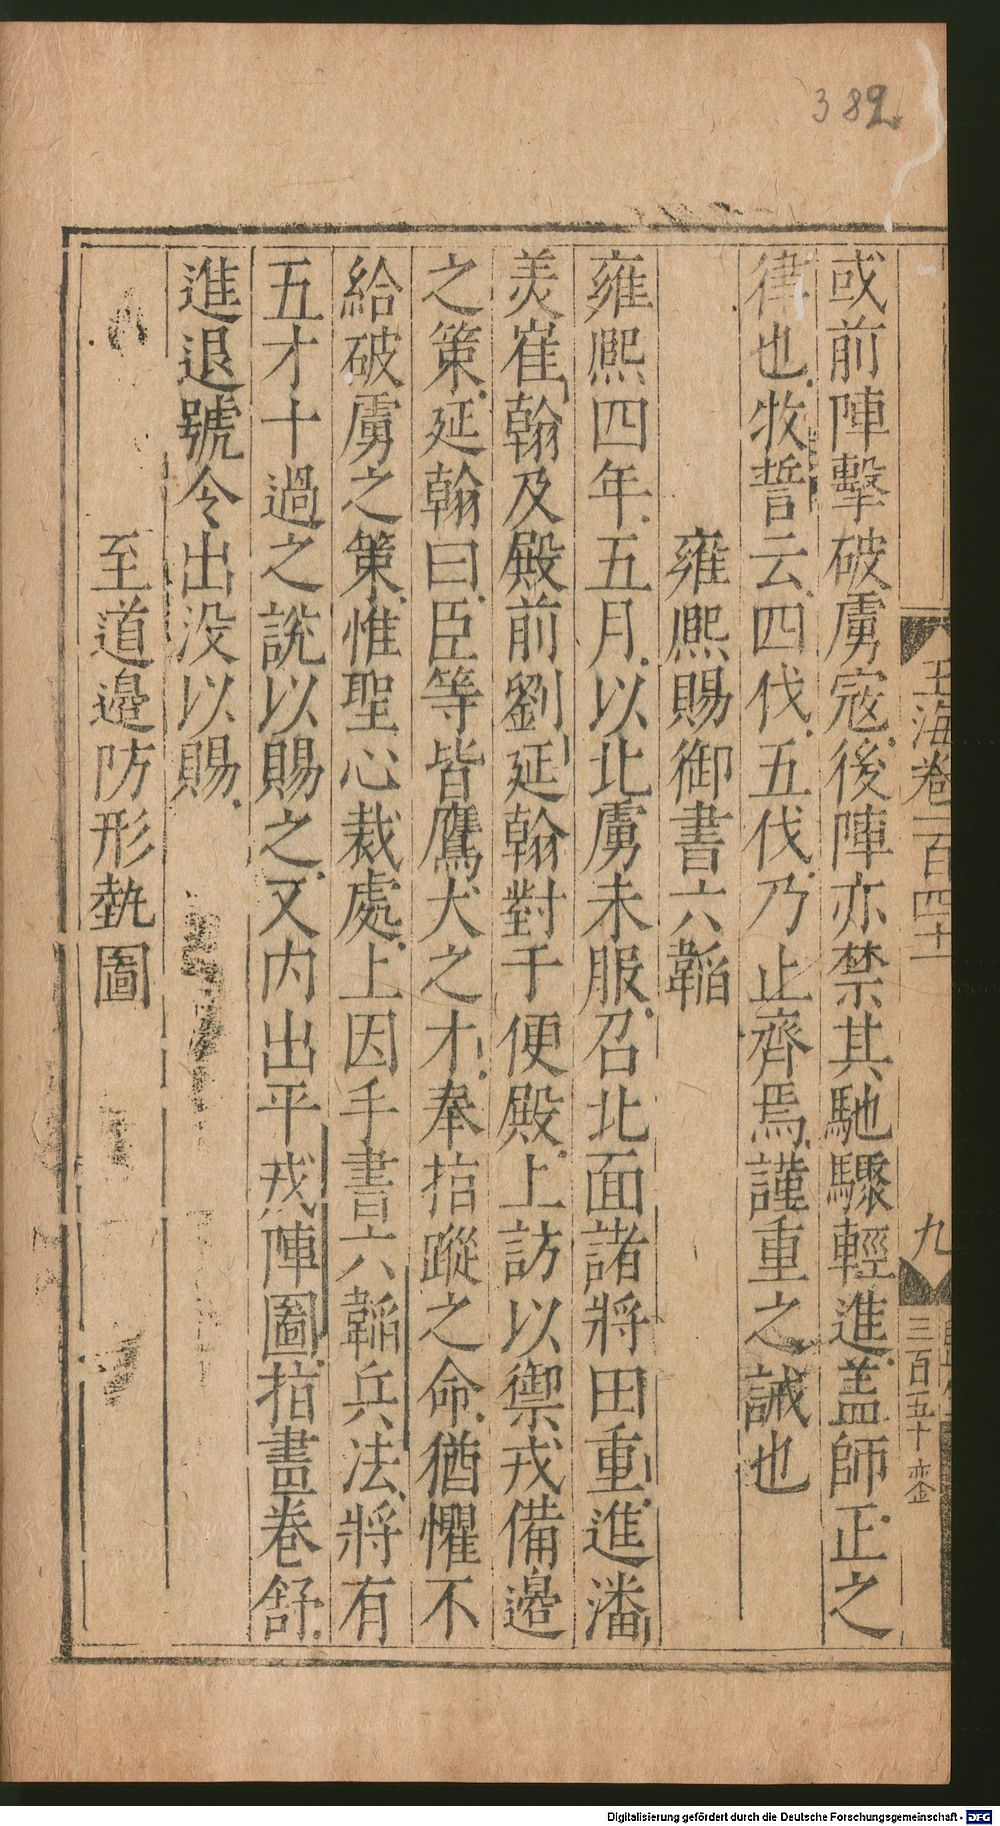 382
玉海卷一百四十一
九
三百五十
或前陣擊破虜寇後陣亦禁其馳驟輕進蓋師正之
律也牧誓云四伐五伐乃止齊焉謹重之誡也
雍熙賜御書六韜
雍熙四年五月以北虜未服召北面諸將田重進潘
美崔翰及殿前劉延翰對于便殿上訪以禦戎備邊
之策延翰曰臣等皆鷹犬之才奉指蹤之命猶懼不
給破虜之策惟聖心裁處上因手書六韜兵法將有
五才十過之說以賜之又内出平戎陣圖指畫卷舒
進退號令出没以賜
至道邊防形埶圖
Digitalisierung gefördert durch die Deutsche Forschungsgemeinschaft - DFG